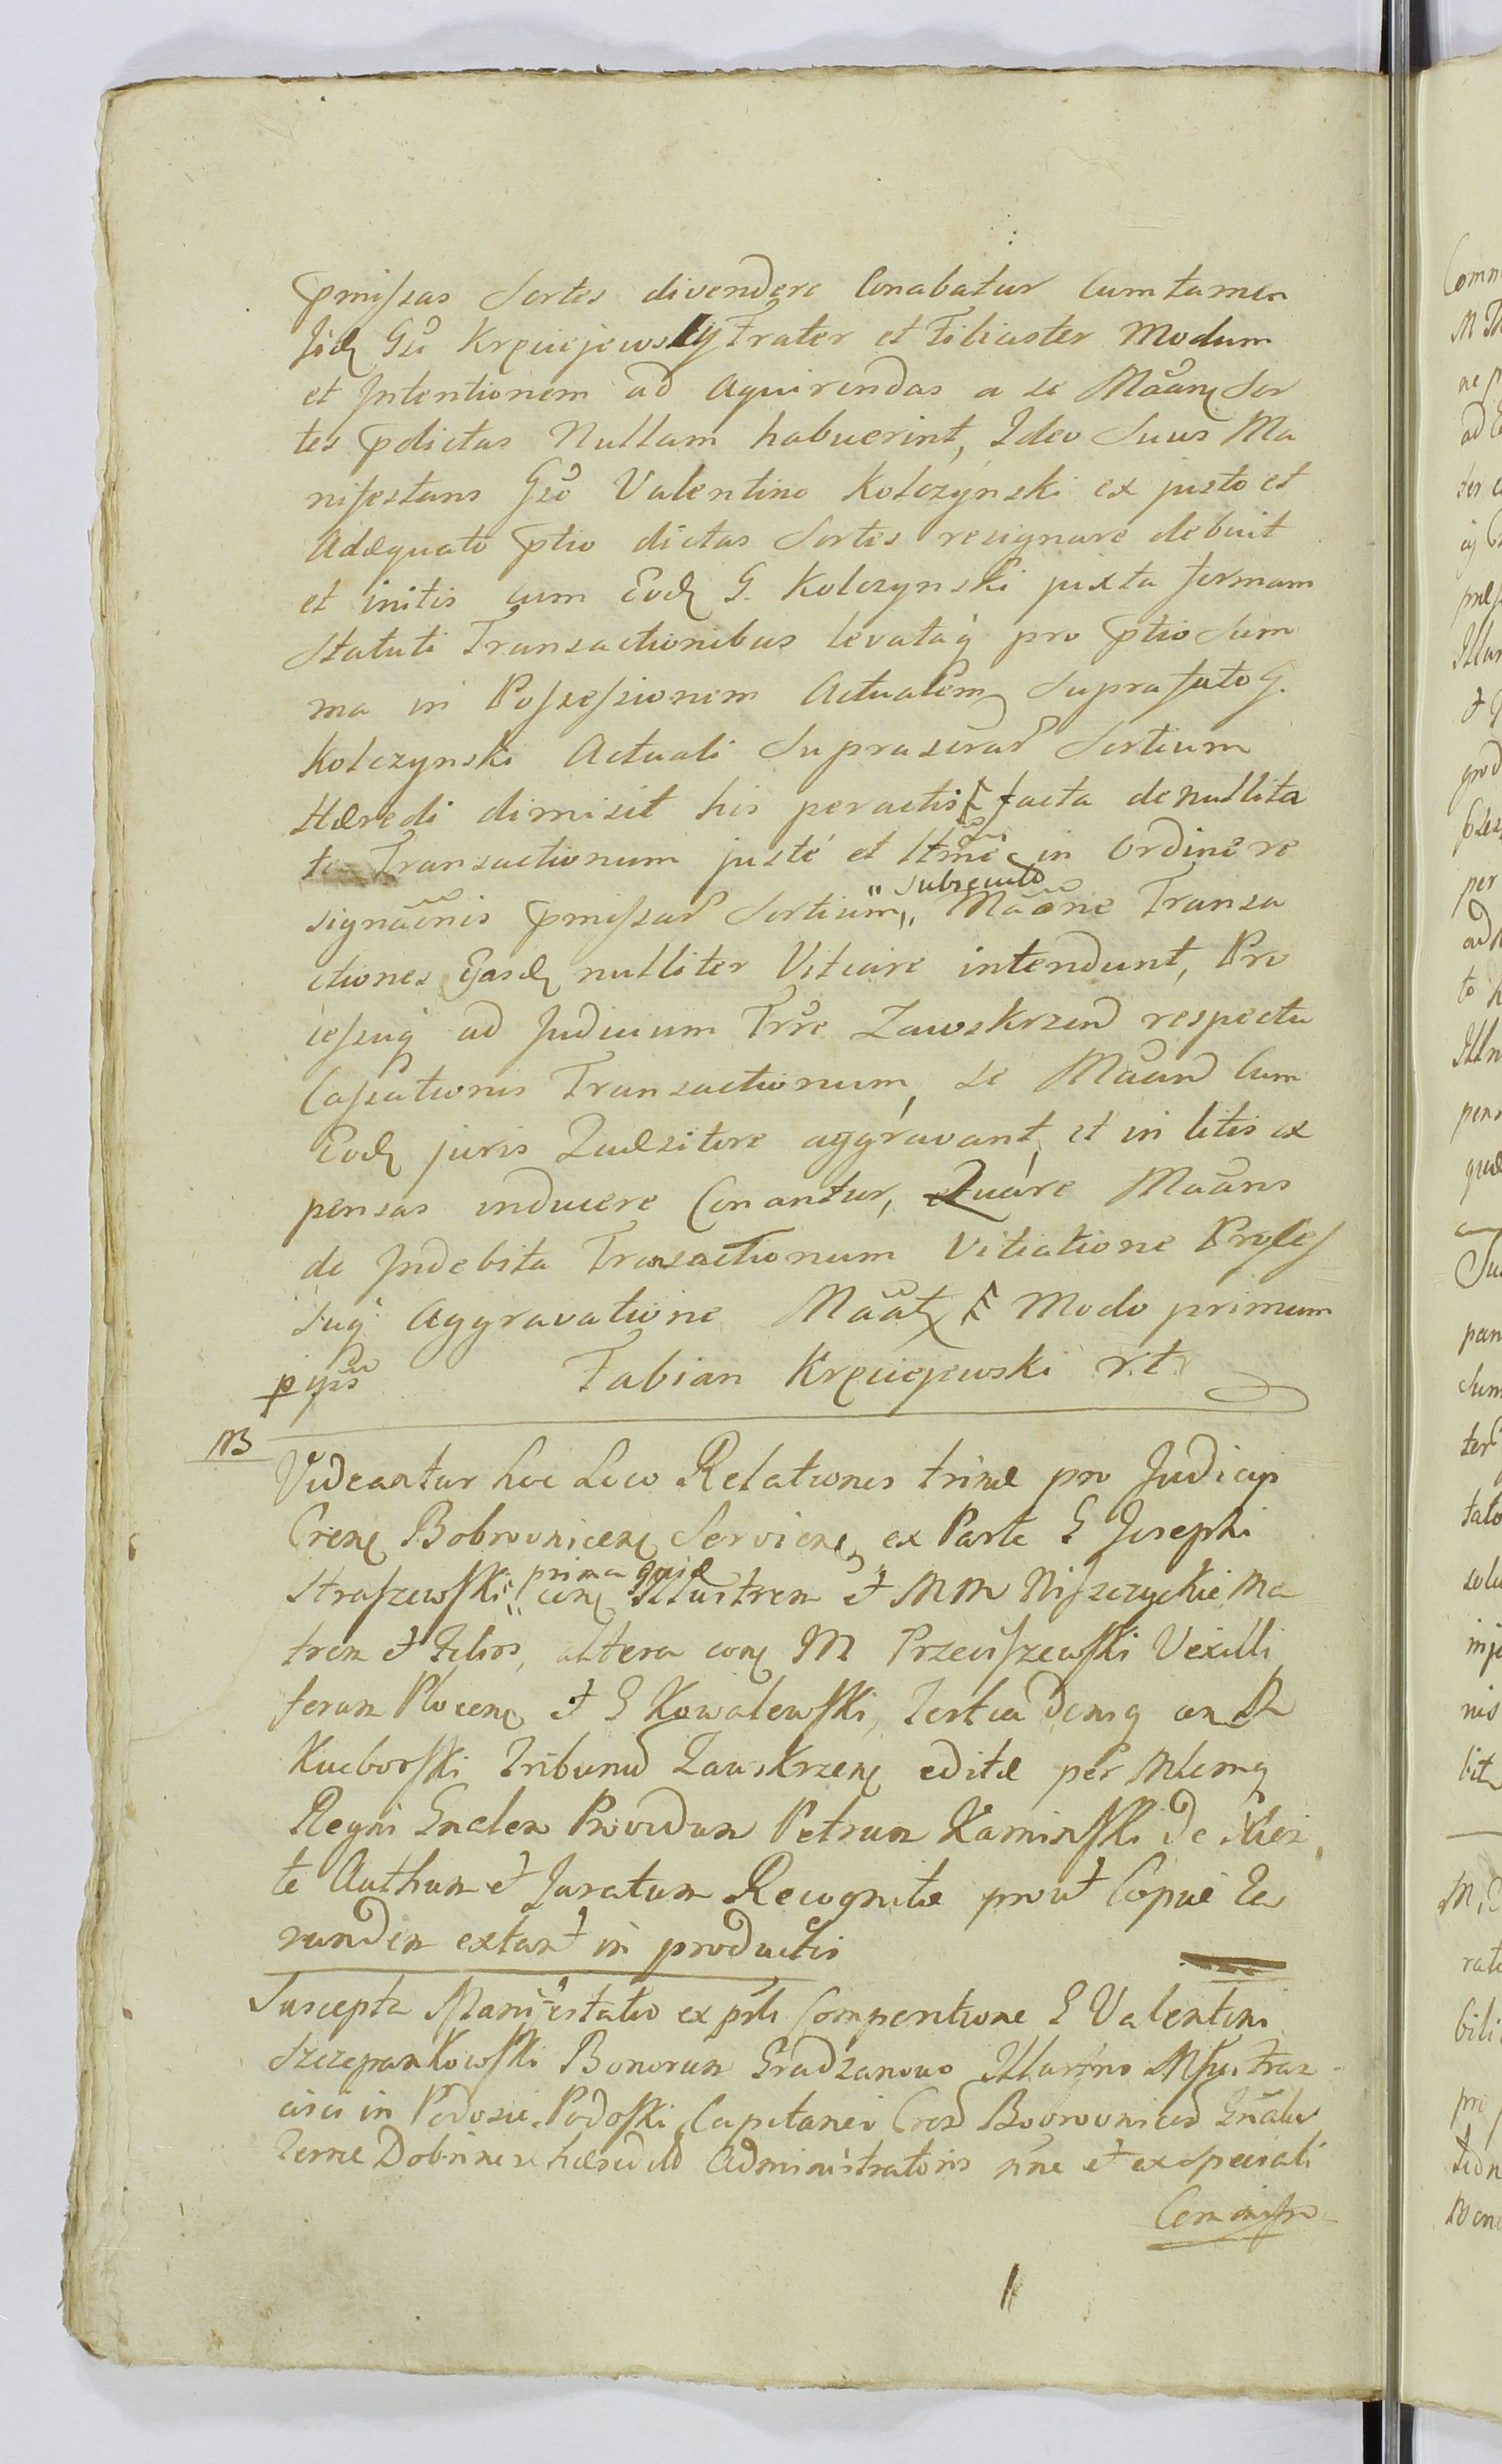 pmissas Sortes divendere Conabatur Cum tamen
Iid Gsi Kręciejewscy Frater et Filiaster Modum
et Intentionem ad aquirendas a se Mããn Sor
tes pdictas Nullam habuerint, Ideo Suus Ma
nifestans Gso Valentino Kolczynski ex justo et
Adæquato ptio dictas Sortes resignare debuit
et initis cum Eod G. Kolczynski juxta formam
Statuti Transactionibus levataq pro ptio Sum
ma in Possessionem Actualem Suprafato G.
Kolczynski Actuali Suprascrar Sortium
Hæredi dimisit his peractis facta de nullita
te Transactionum justé et in Ordine re
signãõnis pmissar Sortium " Subsecuto Mããõne Transa
ctiones Easd nulliter Vitiare intendunt, Pro
cessuq ad Judicium Trre Zawskrzen respectu
Cassationis Transactionum, se Mããn Cum
Eod juris Quæsitore aggravant, et in litis ex
pensas inducere Conantur, Quáre Mããns
de Indebita Transactionum Vitiatione Proces
suq Aggravatione Mããt Modo primum
p ijss Fabian Kręciejewski rt
NB
Videantur hoc Loco Relationes trinæ pro Judicijs
Crens Bobrovnicens Serviens, ex Parte G Josephi
Straszewski " prima quid con Illustrem et MM Niszczyckie Ma
trem et Filios, altera con M Przeciszewski Vexilli
ferum Plocens et G Kowalewski, Tertia Deniq con M
Kuchorski Tribunu Zawskrzens editæ per Mlemq
Regni Gnalem Providum Petrum Kaminski De
te Authum et Juratum Recognitæ prout Copiæ Ea
rundem extant in productis
Suscepta Manifestatio ex psli Comparitione G Valentini
Szczepankowski Bonorum Gradzanowo Illustris Mfci Fran
cisci in Podosie Podoski Capitanei Cren Bobrovnicen Gnalis
Terræ Dobrinens hæredit Administratoris nne et ex speciali
Commisso